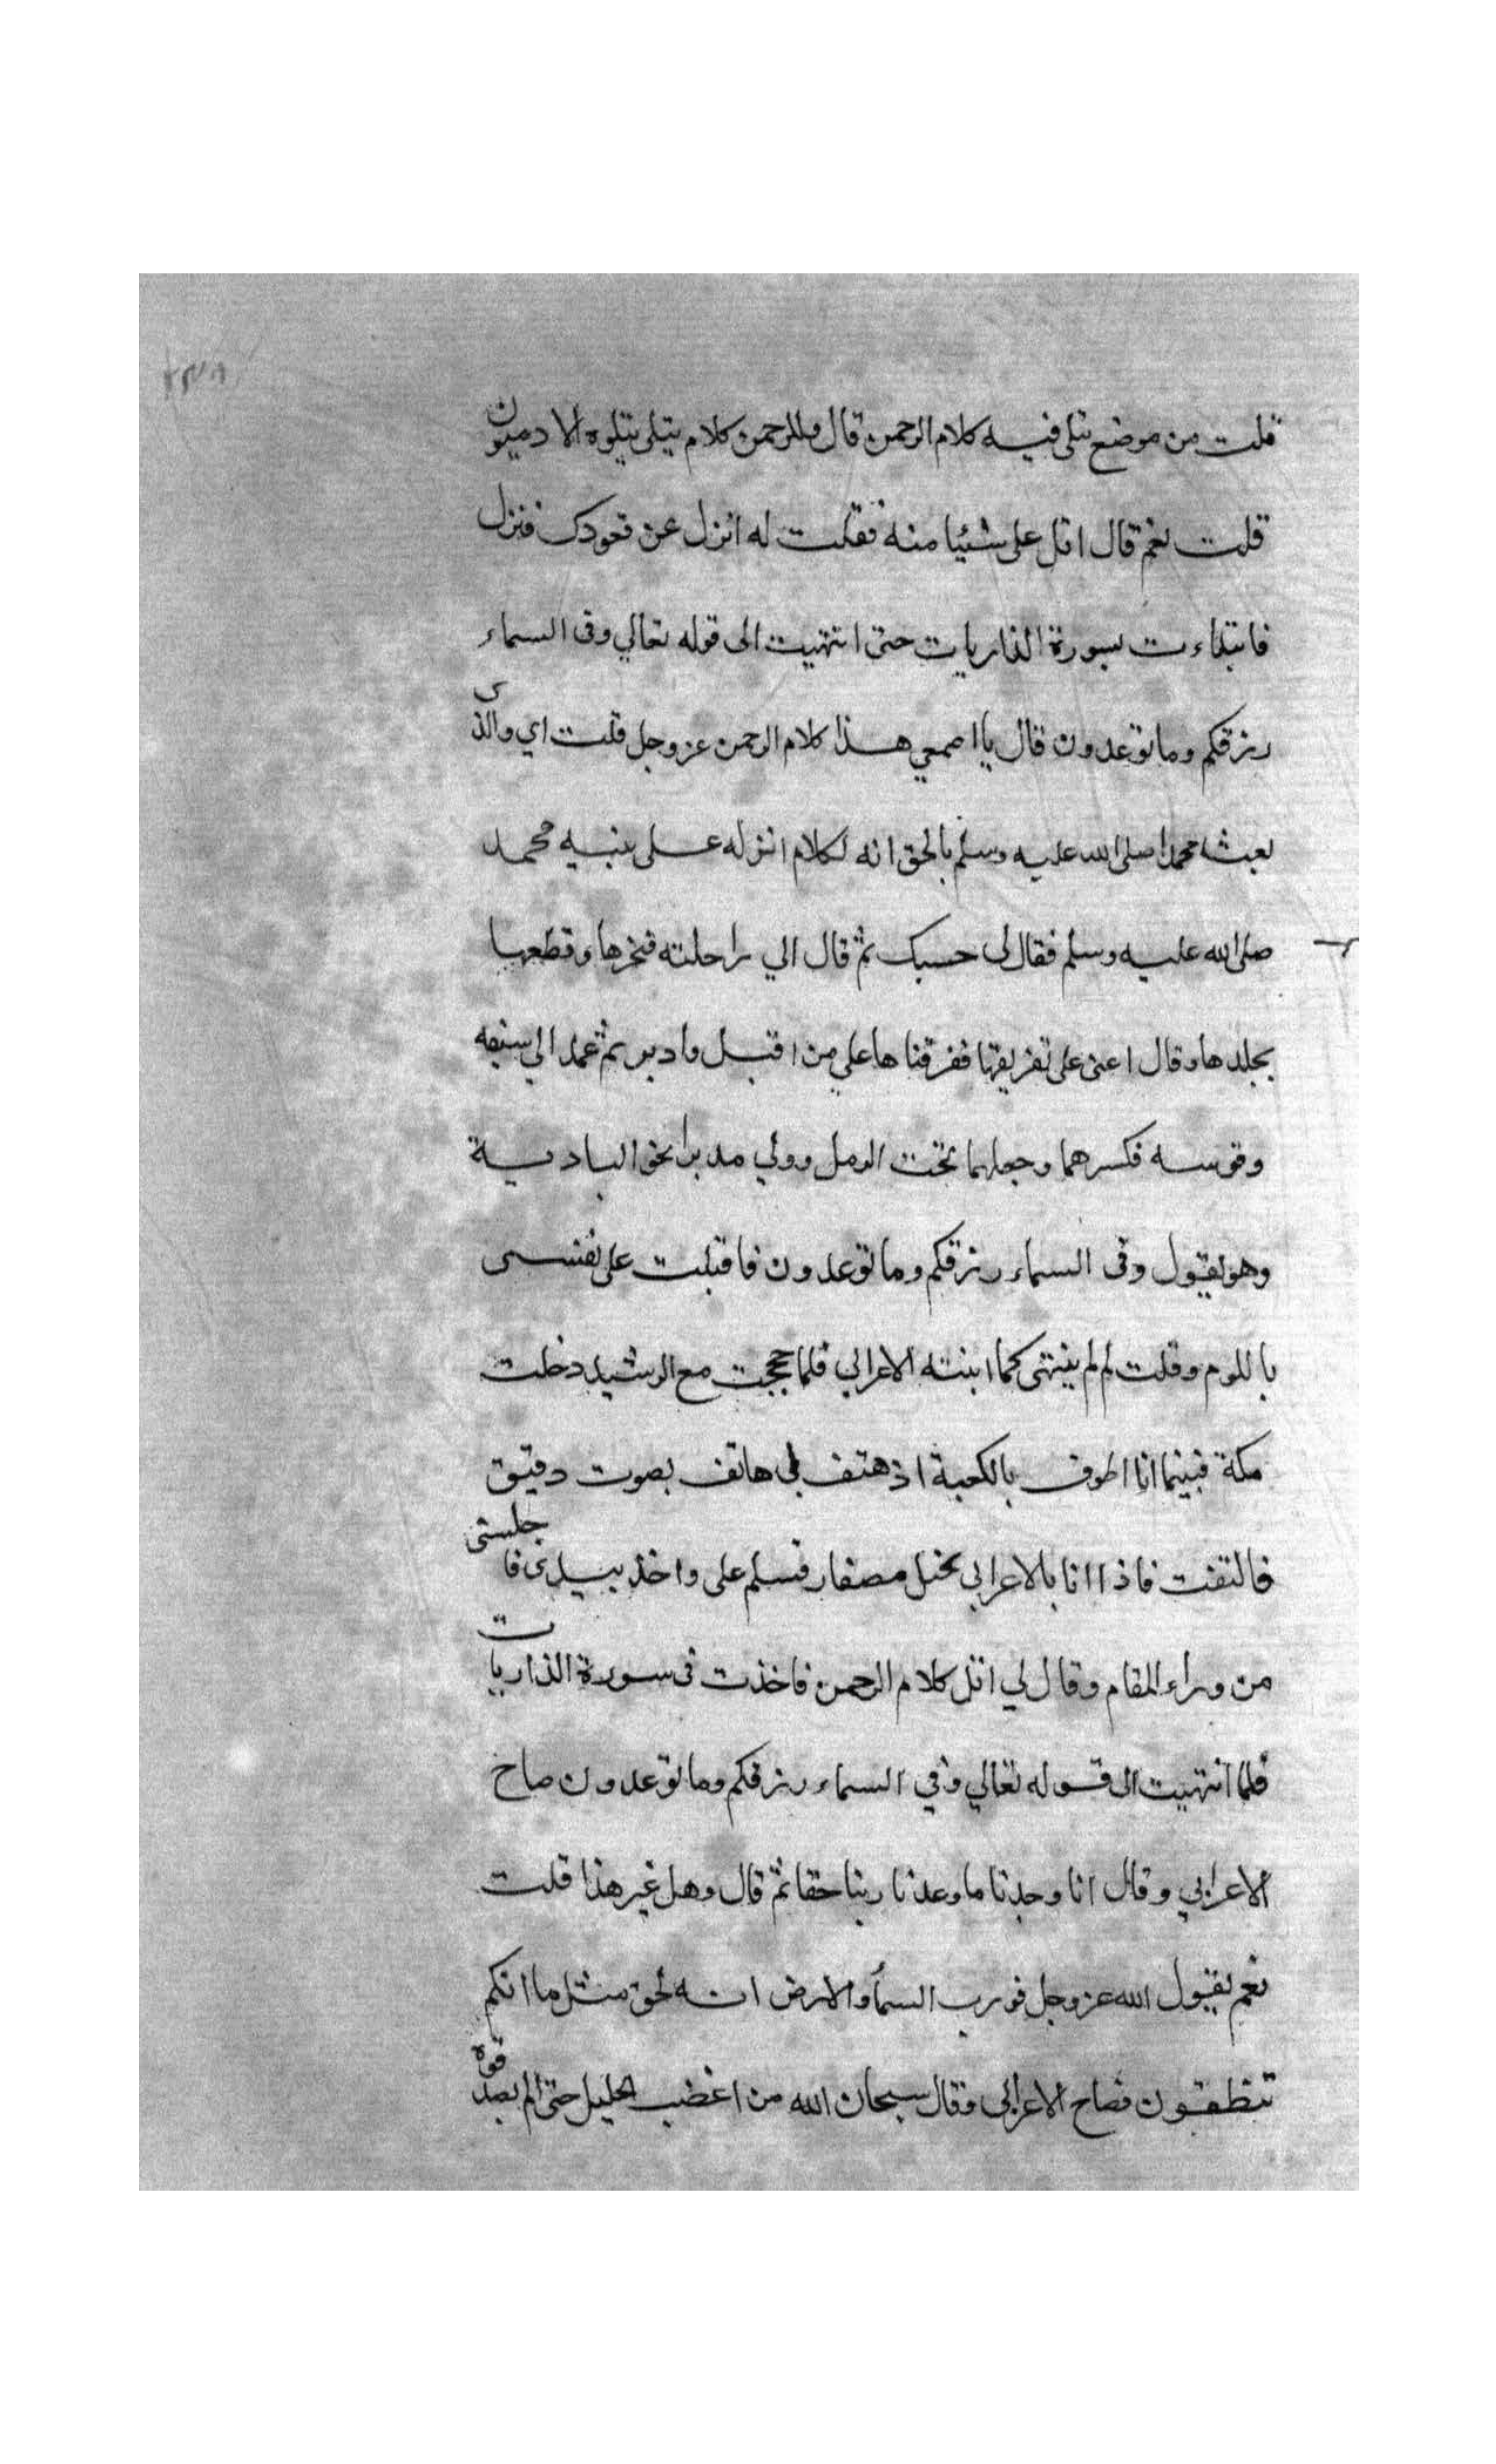 قلت من موضع يتلى فيه كلام الرحمن قال وللرحمن كلام يتلى يتلوه الادميون
قلت نعم قال اتل على شئيا منه فقلت له انزل عن قعودك فنزل
فابتداءت بسورة الذاريات حتى انتهيت الى قوله تعالي وفى السماء
رزقكم وما توعدون قال يا اصمعي هذا كلام الرحمن عز وجل قلت اي والذى
بعث محمدا صلى الله عليه وسلم بالحق انه لكلام انزله على نبيه محمد
صلى الله عليه وسلم فقال لى حسبك ثم قال الي راحلته فنحرها وقطعها
بجلدها وقال اعنى على تفريقها ففرقنا ها علي من اقبل وادبر ثم عمد الي سيفه
وقوسه فكسرهما وجعلهما تحت الرمل وولي مدبرا نحو البادية
وهو يقول وفى السماء رزقكم وما توعدون فاقبلت على نفسى
باللوم وقلت لم لم ينتهى كما ابنته الاعرابي فلما حججت مع الرشيد دخلت
مكة فبينما انا اطوف بالكعبة اذ هتف بى هاتف بصوت دقيق
فالتفت فاذا انا بالاعرابي نحيل مصفار فسلم على واخذ بيدى فاجلستى
من وراء المقام وقال لي اتل كلام الرحمن فاخذت فى سورة الذاريات
فلما انتهيت الى قوله تعالي وفي السماء رزقكم وما توعدون صاح
الاعرابي وقال انا وجدنا ما وعدنا ربنا حقا ثم قال وهل غير هذا قلت
نعم يقول الله عز وجل فورب السمأ والارض انه لحق مثل ما انكم
تنطقون فصاح الاعرابى وقال سبحان الله من اغضب الجليل حتى الم يصدقوه